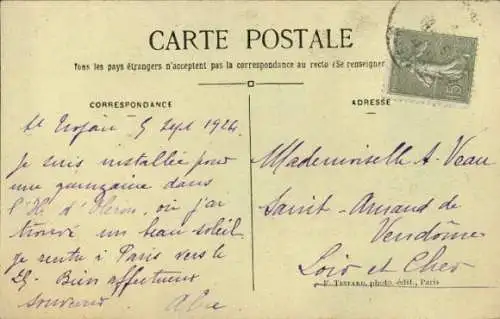 CARTE POSTALE
Tous les pays étrangers n'acceptent pas la correspondance au recto (Se renseigner
CORRESPONDANCE
ADRESSE
St Trojan 5 Sept 1924
Je suis installée pour
une quinzaine dans
l'Ile d'Oleron, où j'ai
trouvé un beau soleil
je rentre à Paris vers le
25. Bien affectueux
souvenir.
Mademoiselle A. Veau
Saint-Amand de
Vendôme
Loir et Cher
F. TESTARD, photo. édit., Paris